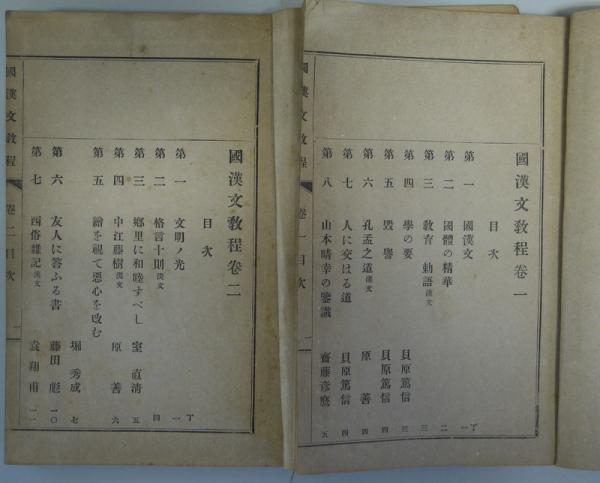 國漢文教程卷一
目次
第一 國漢文 丁一
第二 國體の精華 二
第三 教育勅語漢文 三
第四 學の要 貝原篤信 三
第五 毀譽 貝原篤信 四
第六 孔孟之道漢文 原善 四
第七 人に交はる道 貝原篤信 四
第八 山本晴幸の鑒識 齋藤彦麿 五
國漢文教程 卷一目次 一
國漢文教程卷二
目次
第一 文明ノ光 丁一
第二 格言十則漢文 四
第三 鄕里に和睦すべし 室直清 五
第四 中江藤樹漢文 原善 六
第五 繪を視て惡心を改む 堀秀成 七
第六 友人に答ふる書 藤田彪 一〇
第七 西俗雜記漢文 袁翔甫 一一
國漢文教程 卷二目次 一